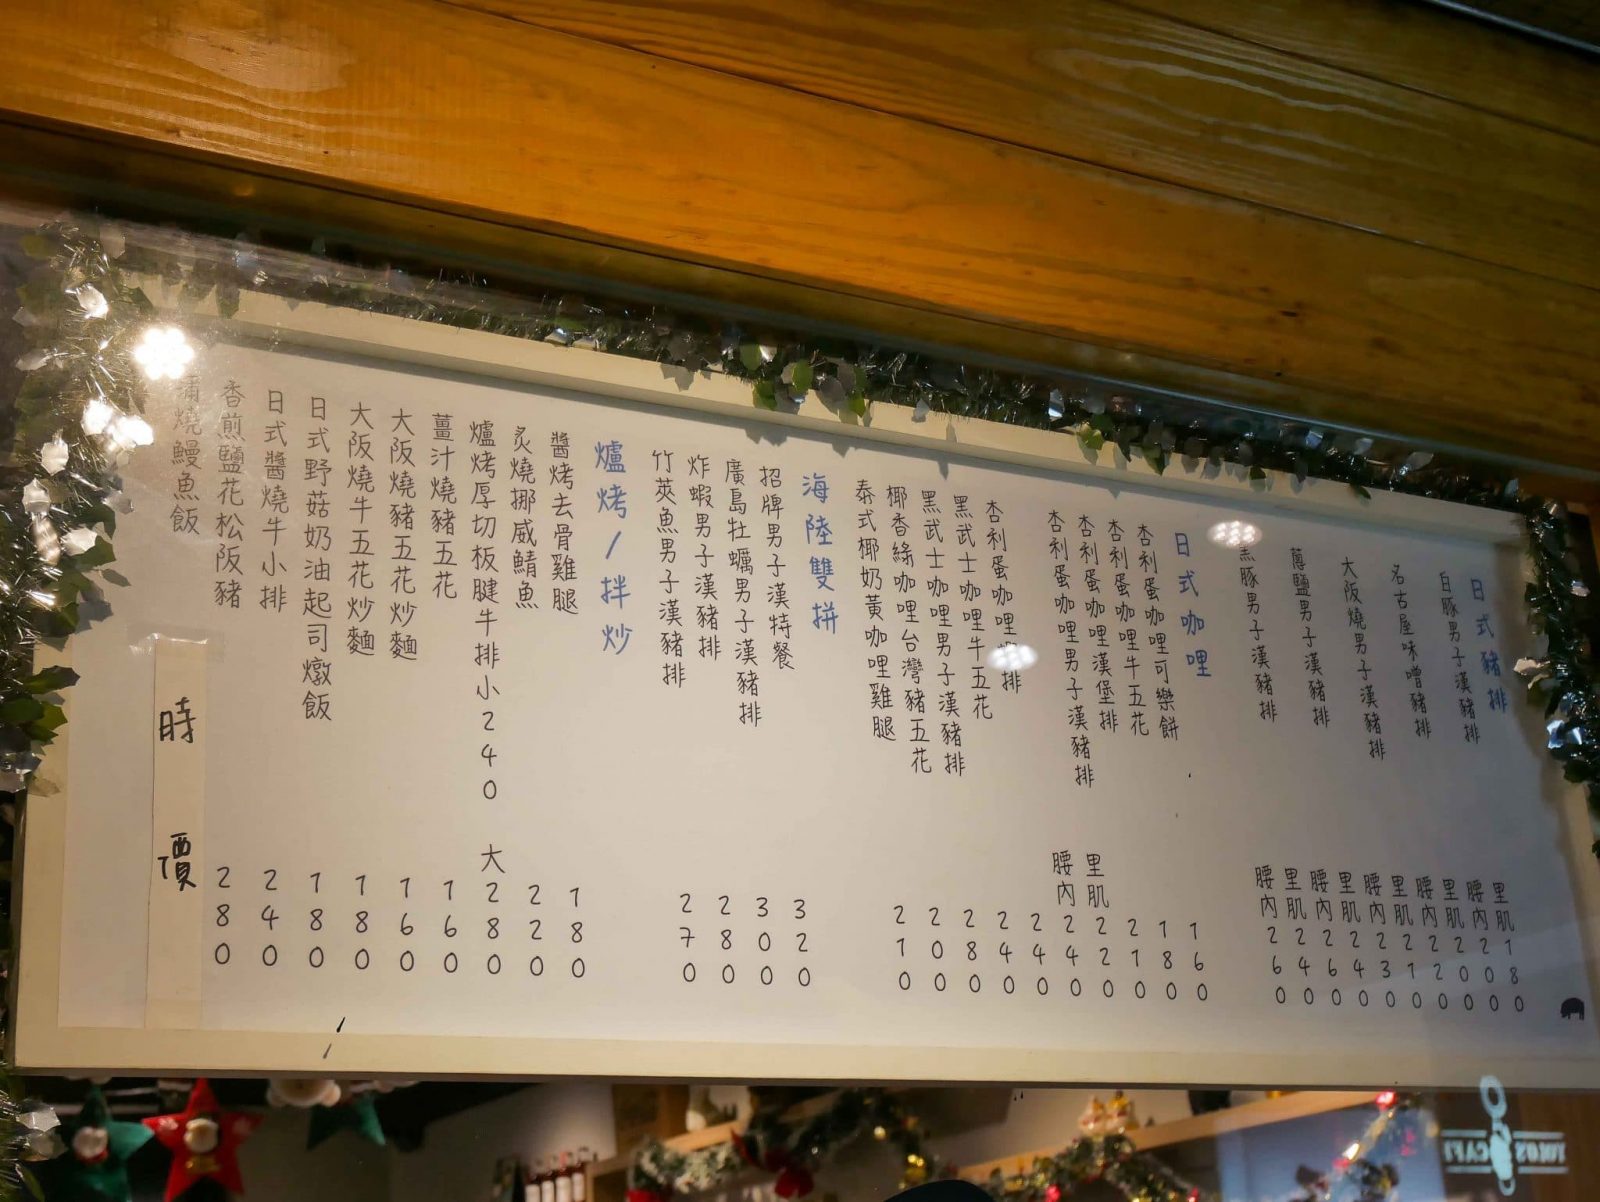 日式豬排
白豚男子漢豬排 里肌180 腰內200
名古屋味噌豬排 里肌200 腰內220
大阪燒男子漢豬排 里肌210 腰內230
蔥鹽男子漢豬排 里肌240 腰內260
黑豚男子漢豬排 里肌240 腰內260
日式咖哩
杏利蛋咖哩可樂餅 160
杏利蛋咖哩牛五花 180
杏利蛋咖哩漢堡排 210
杏利蛋咖哩男子漢豬排 里肌220 腰內240
杏利蛋咖哩排 240
黑武士咖哩牛五花 240
黑武士咖哩男子漢豬排 280
椰香綠咖哩台灣豬五花 200
泰式椰奶黃咖哩雞腿 210
海陸雙拼
招牌男子漢特餐 320
廣島牡蠣男子漢豬排 300
炸蝦男子漢豬排 280
竹莢魚男子漢豬排 270
爐烤/拌炒
醬烤去骨雞腿 180
炙燒挪威鯖魚 220
爐烤厚切板腱牛排小240 大280
薑汁燒豬五花 160
大阪燒豬五花炒麵 160
大阪燒牛五花炒麵 180
日式野菇奶油起司燉飯 180
日式醬燒牛小排 240
香煎鹽花松阪豬 280
蒲燒鰻魚飯 時價